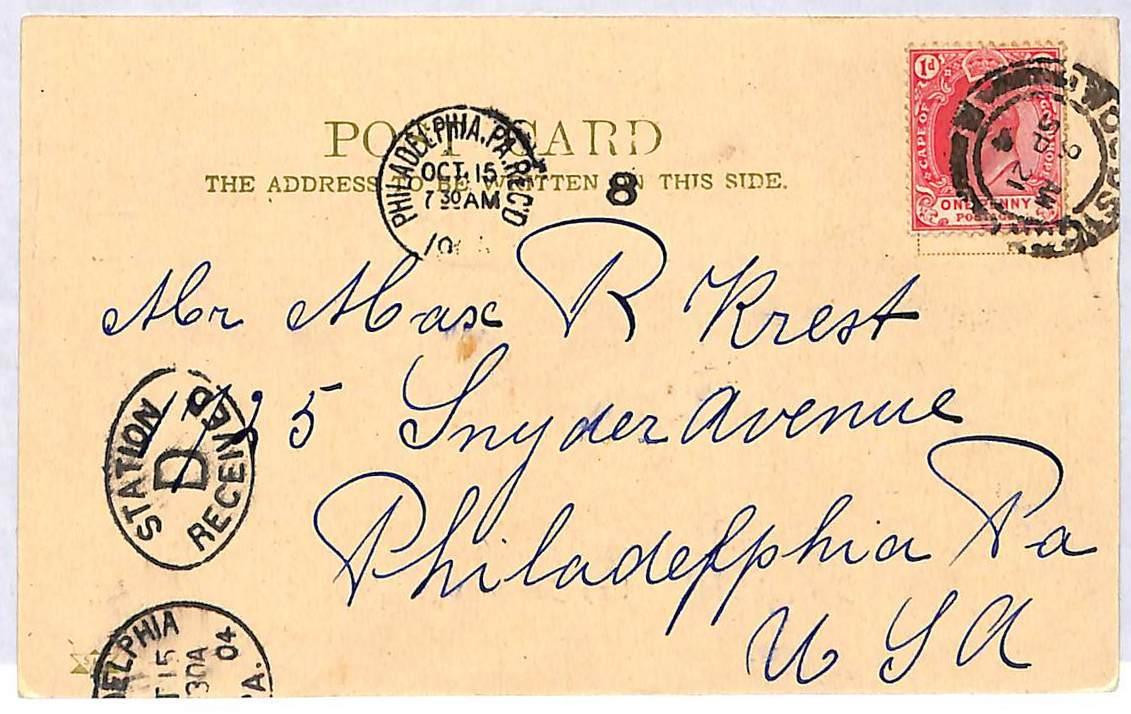 POST CARD
THE ADDRESS TO BE WRITTEN ON THIS SIDE.
PHILADELPHIA, PA. REC'D
OCT 15
7 30 AM
8
1d
CAPE OF
ONE PENNY
POSTAGE
Mr Max R Krest
Snyder Avenue
Philadelphia Pa
U S A
STATION
D
RECEIVED
DELPHIA
T 15
30A
04
PA.